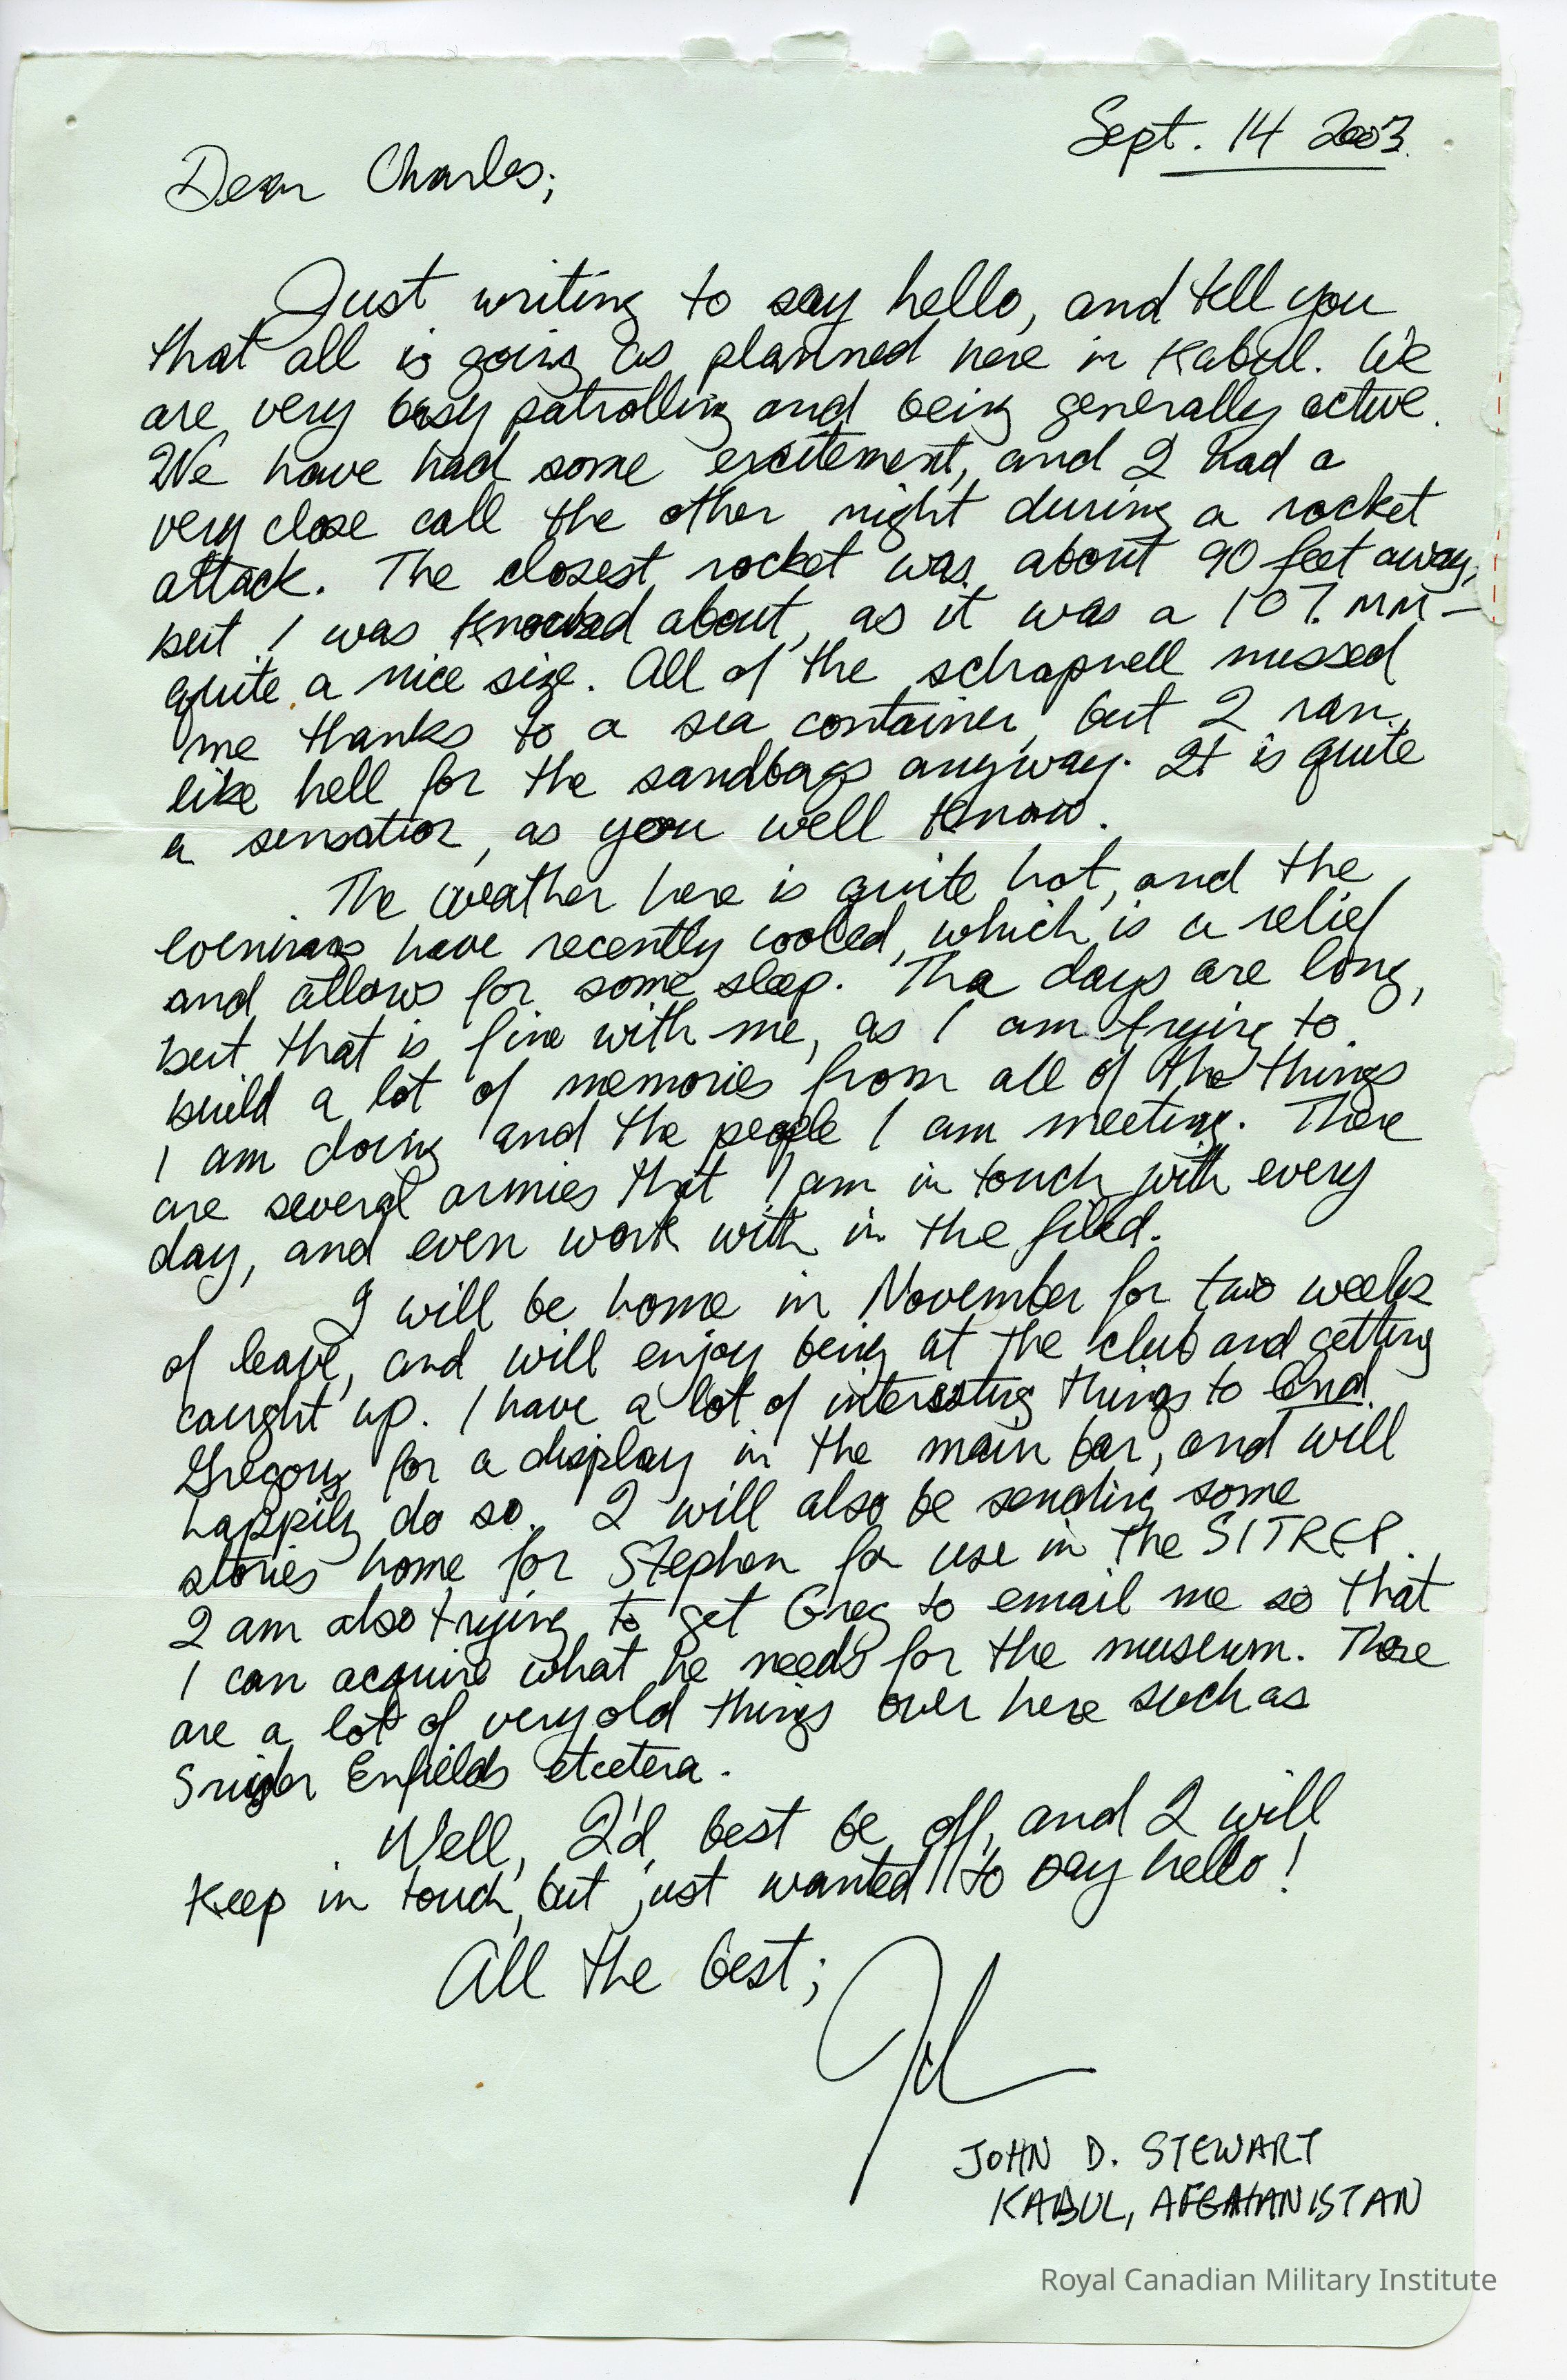 Sept. 14 2003.
Dear Charles;
Just writing to say hello, and tell you
that all is going as planned here in Kabul. We
are very busy patrolling and being generally active.
We have had some excitement, and I had a
very close call the other night during a rocket
attack. The closest rocket was about 90 feet away,
but I was knocked about, as it was a 107 MM –
quite a nice size. All of the schrapnell missed
me thanks to a sea container, but I ran
like hell for the sandbags anyway. It is quite
a sensation, as you well know.
The weather here is quite hot, and the
evenings have recently cooled, which is a relief
and allows for some sleep. The days are long,
but that is fine with me, as I am trying to
build a lot of memories from all of the things
I am doing and the people I am meeting. There
are several armies that I am in touch with every
day, and even work with in the filed.
I will be home in November for two weeks
of leave, and will enjoy being at the club and getting
caught up. I have a lot of interesting things to lend
Gregory for a display in the main bar, and will
happily do so. I will also be sending some
stories home for Stephen for use in the SITREP.
I am also trying to get Greg to email me so that
I can acquire what he needs for the museum. There
are a lot of very old things over here such as
Snider Enfields etcetera.
Well, I'd best be off, and I will
keep in touch, but just wanted to say hello!
All the best;
John
JOHN D. STEWART
KABUL, AFGHANISTAN
Royal Canadian Military Institute